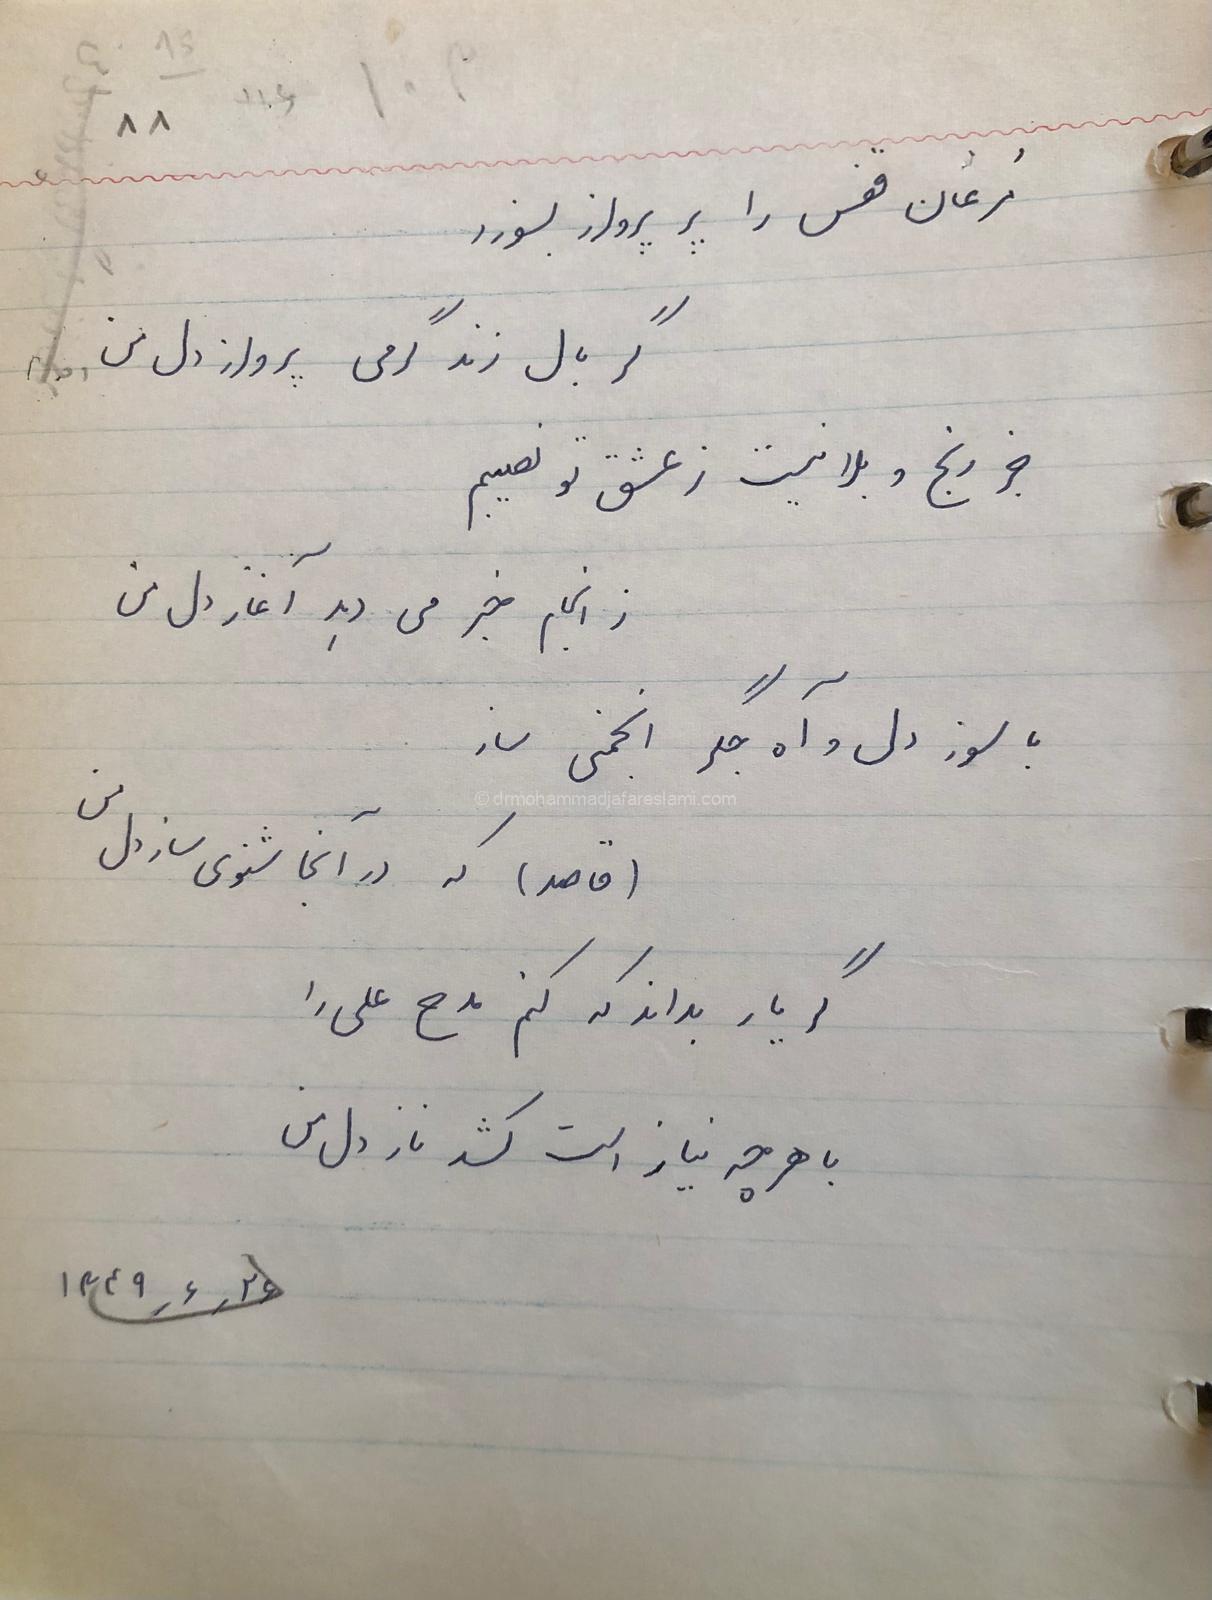 ۸۸
مُرغان قفس را پر پرواز بسوزد
گر بال زند گرمی پرواز دل من
جز رنج و بلا نیست ز عشق تو نصیبم
ز انجام خبر می دهد آغاز دل من
با سوز دل و آه جگر انجمنی ساز
© drmohammadjafareslami.com
(قاصد) که در آنجا شنوی ساز دل من
گر یار بداند که کنم مدح علی را
با هر چه نیاز است کشد ناز دل من
۲۶ر۶ر۱۳۴۹